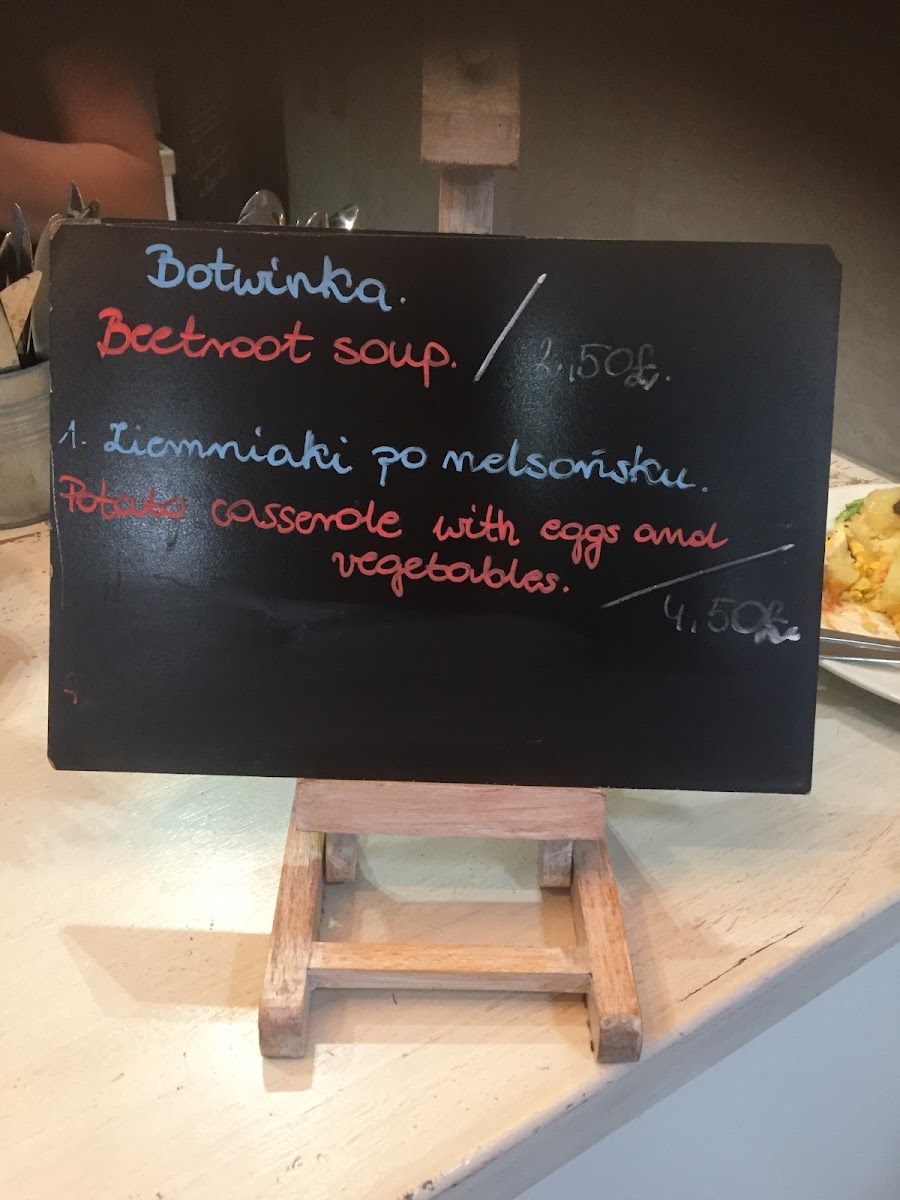 Botwinka.
Beetroot soup. / 2,50£.
1. Ziemniaki po nelsońsku.
Potato casserole with eggs and
vegetables. / 4,50£.